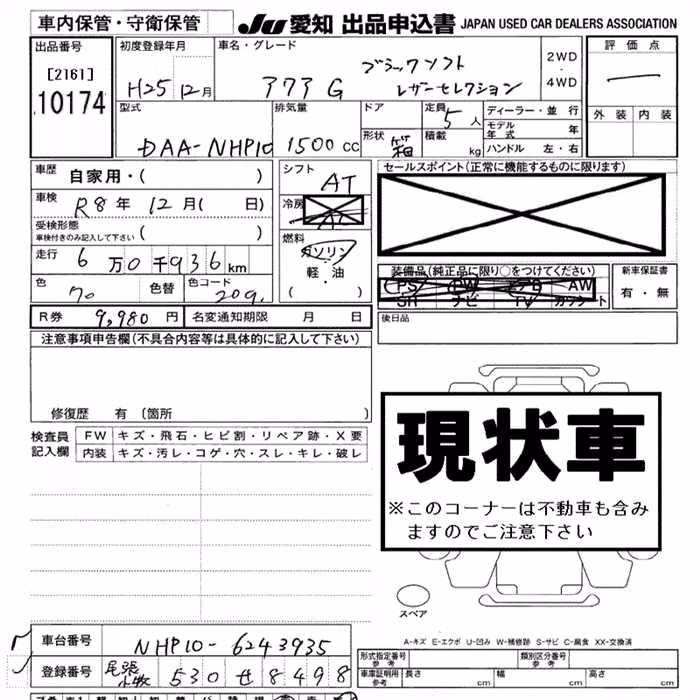 車内保管・守衛保管 JU 愛知 出品申込書 JAPAN USED CAR DEALERS ASSOCIATION
出品番号 初度登録年月 車名・グレード 評価点
[2161] 10174 H25年12月 アクア G ブラックソフト レザーセレクション 2WD・4WD
外装 内装
型式 排気量 ドア 定員 5人 ディーラー・並行
DAA-NHP10 1500cc 形状 箱 積載 kg モデル年式 年
ハンドル 左・右
車歴 自家用・( ) シフト AT セールスポイント(正常に機能するものに限ります)
車検 R8年12月( 日) 冷房 AC
受検形態 車検付きのみ記入して下さい ( ) 燃料 ガソリン・軽・油 ( )
走行 6万0千936km
装備品(純正品に限り○をつけてください) 新車保証書
PS PW エアB AW 有・無
SR ナビ TV カワシート
色 色替 色コード 209
後日品
R券 9,980円 名変通知期限 月 日
注意事項申告欄(不具合内容等は具体的に記入して下さい)
修復歴 有 〔箇所 〕
検査員記入欄 FW キズ・飛石・ヒビ割・リペア跡・X要
内装 キズ・汚レ・コゲ・穴・スレ・キレ・破レ
現状車
※このコーナーは不動車も含み
ますのでご注意下さい
スペア
A-キズ E-エクボ U-凹み W-補修跡 S-サビ C-腐食 XX-交換済
車台番号 NHP10-6243935
登録番号 尾張小牧 530 せ 8498
形式指定番号 参考 類別区分番号 参考
車庫証明用 参考 長さ cm 幅 cm 高さ cm